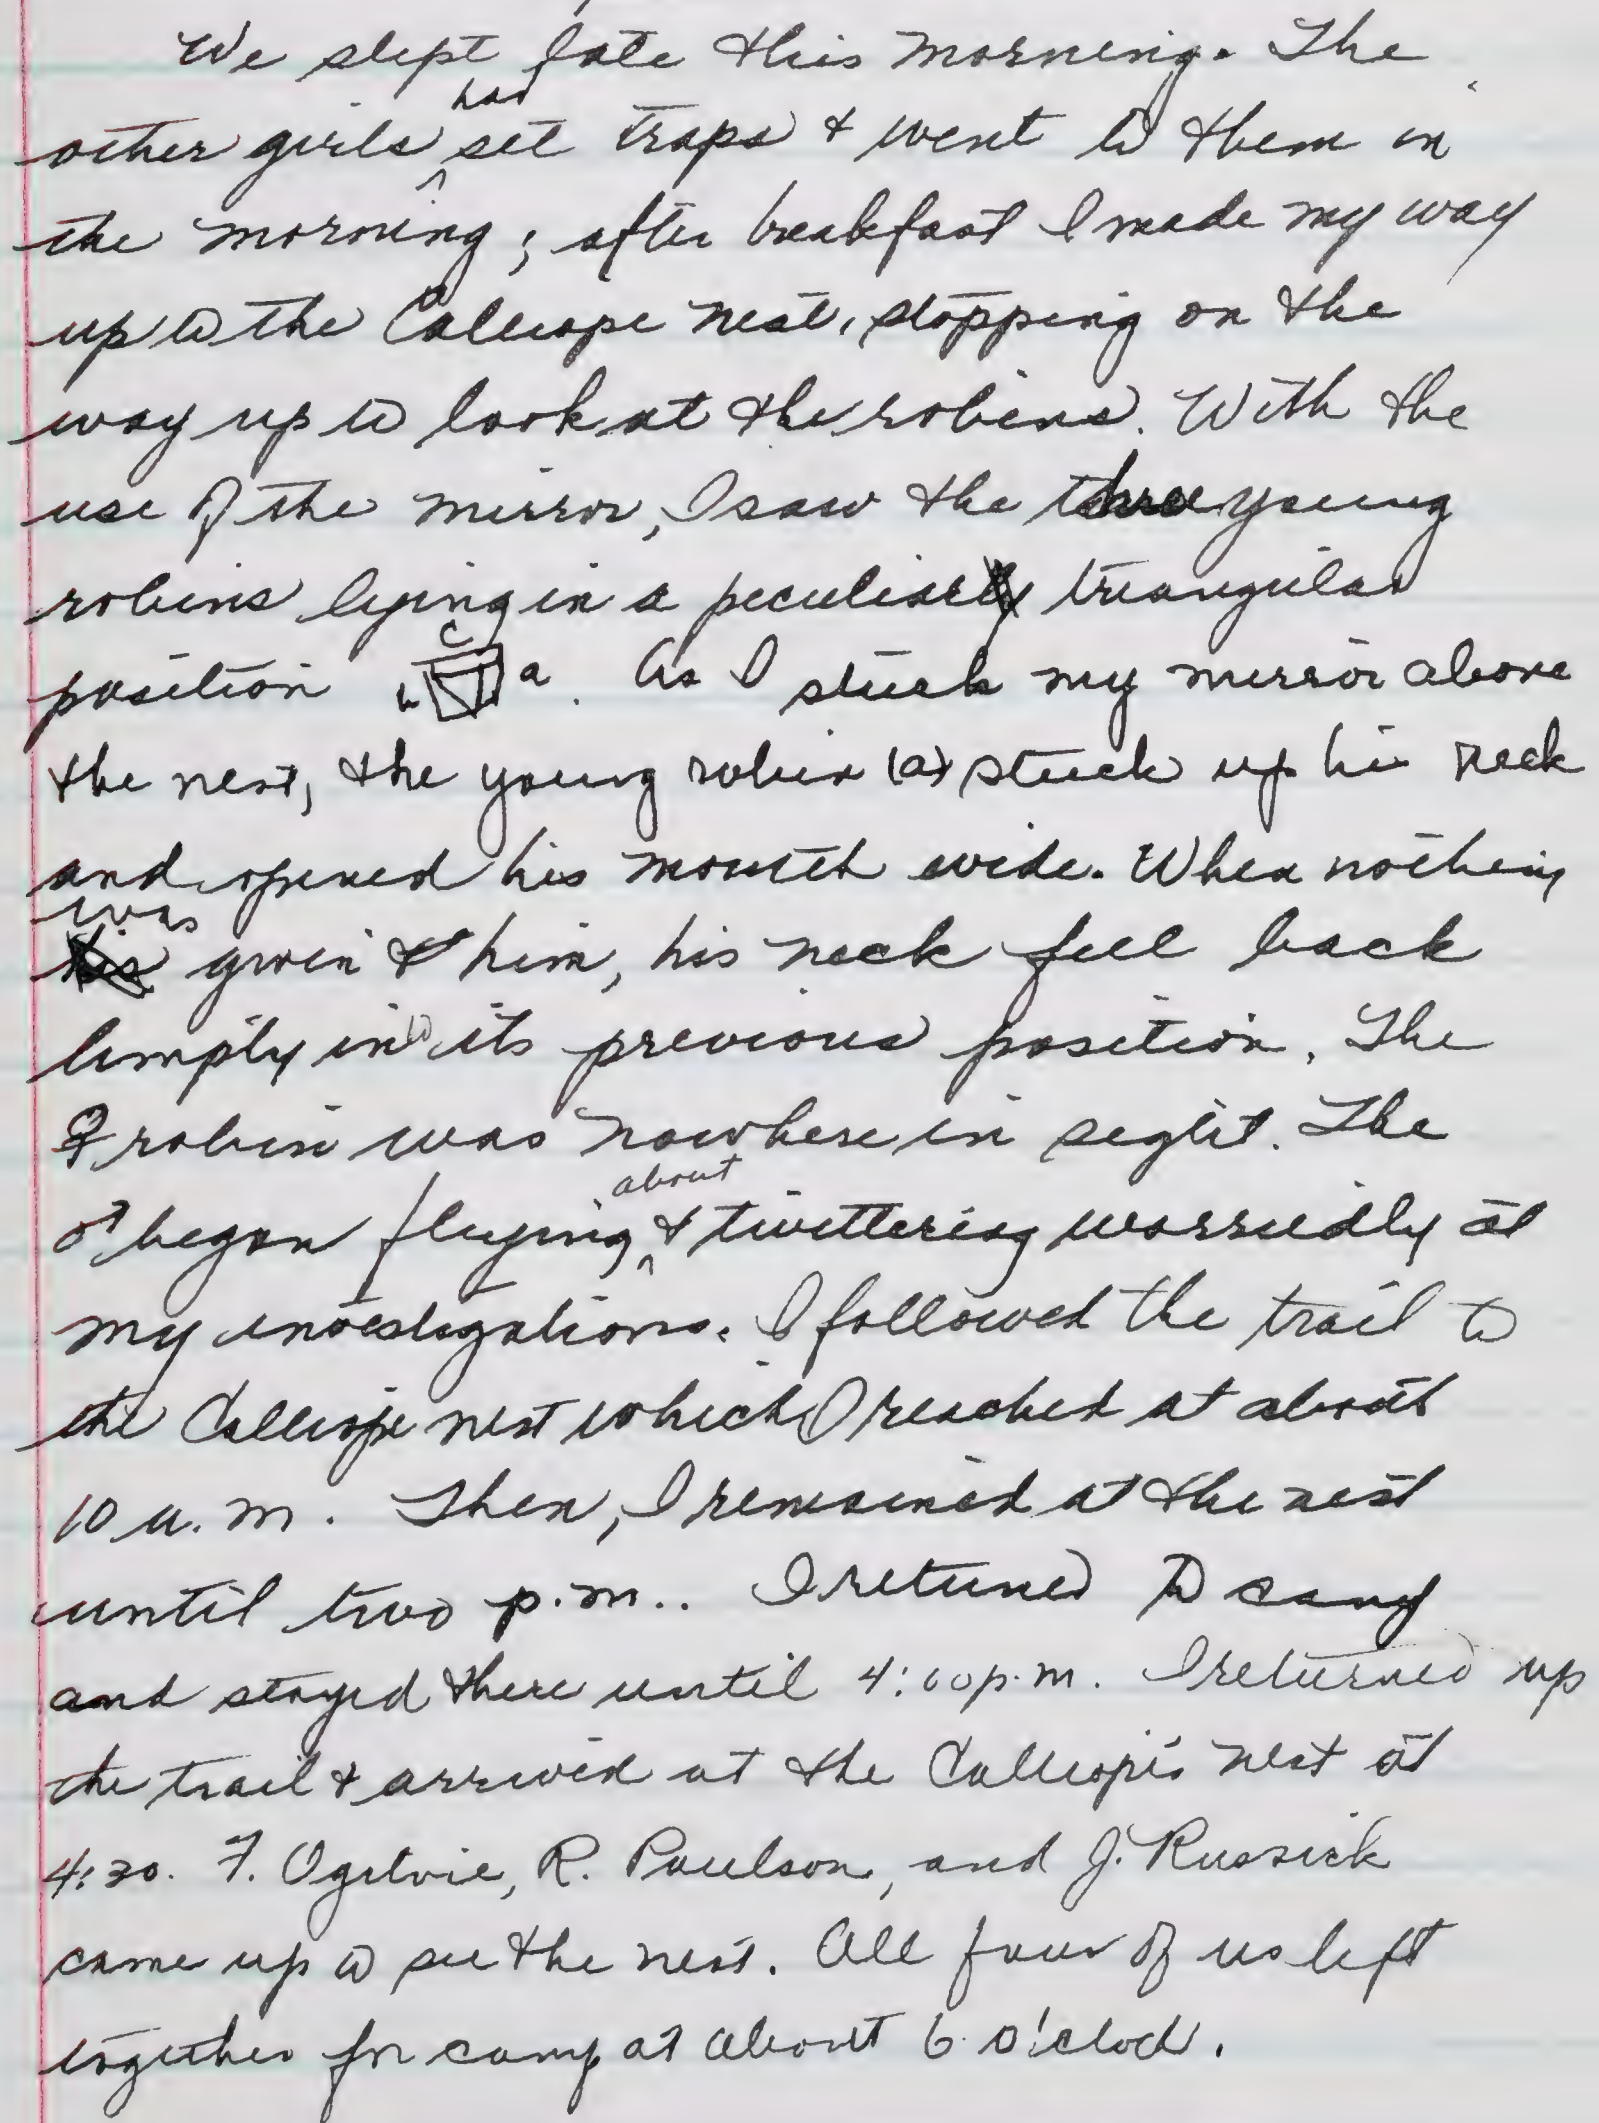 We slept late this morning. The
other girls had set traps & went to them in
the morning; after breakfast I made my way
up to the Calliope nest, stopping on the
way up to look at the robins. With the
use of the mirror, I saw the three young
robins lying in a peculiar triangular
position c b a. As I stuck my mirror above
the nest, the young robin (a) stuck up his neck
and opened his mouth wide. When nothing
was given to him, his neck fell back
limply into its previous position. The
♀ robin was nowhere in sight. The
♂ began flying about & twittering worriedly at
my investigations. I followed the trail to
the Calliope nest which I reached at about
10 a.m. Then, I remained at the nest
until two p.m.. I retuned to camp
and stayed there until 4:00 p.m. I returned up
the trail & arrived at the Calliope's nest at
4:30. F. Ogilvie, R. Paulson, and J. Russick
came up to see the nest. All four of us left
together for camp at about 6 o'clock.